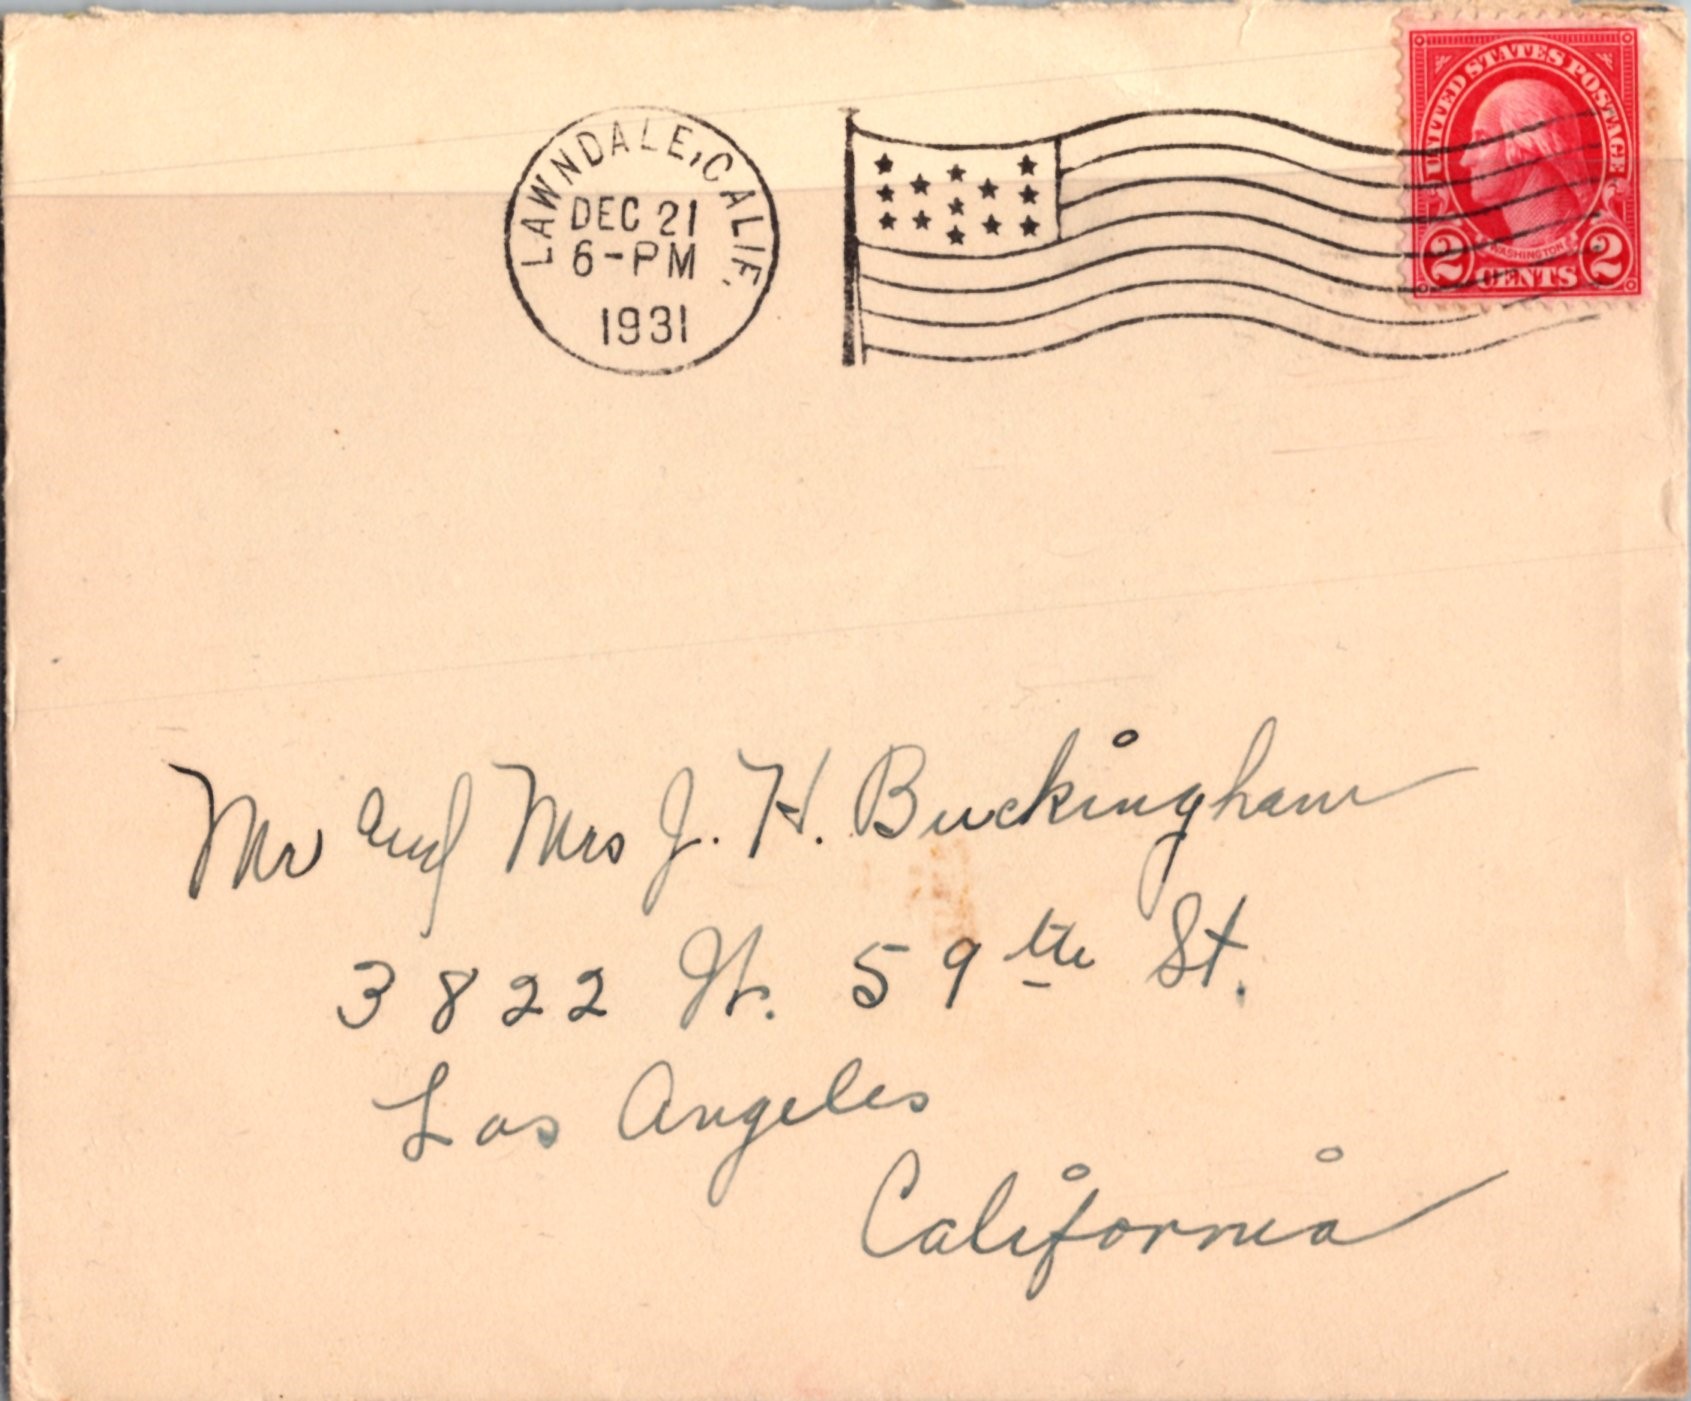 LAWNDALE, CALIF.
DEC 21
6-PM
1931
UNITED STATES POSTAGE
WASHINGTON
2 CENTS 2
Mr and Mrs J. H. Buckingham
3822 W. 59th St.
Los Angeles
California